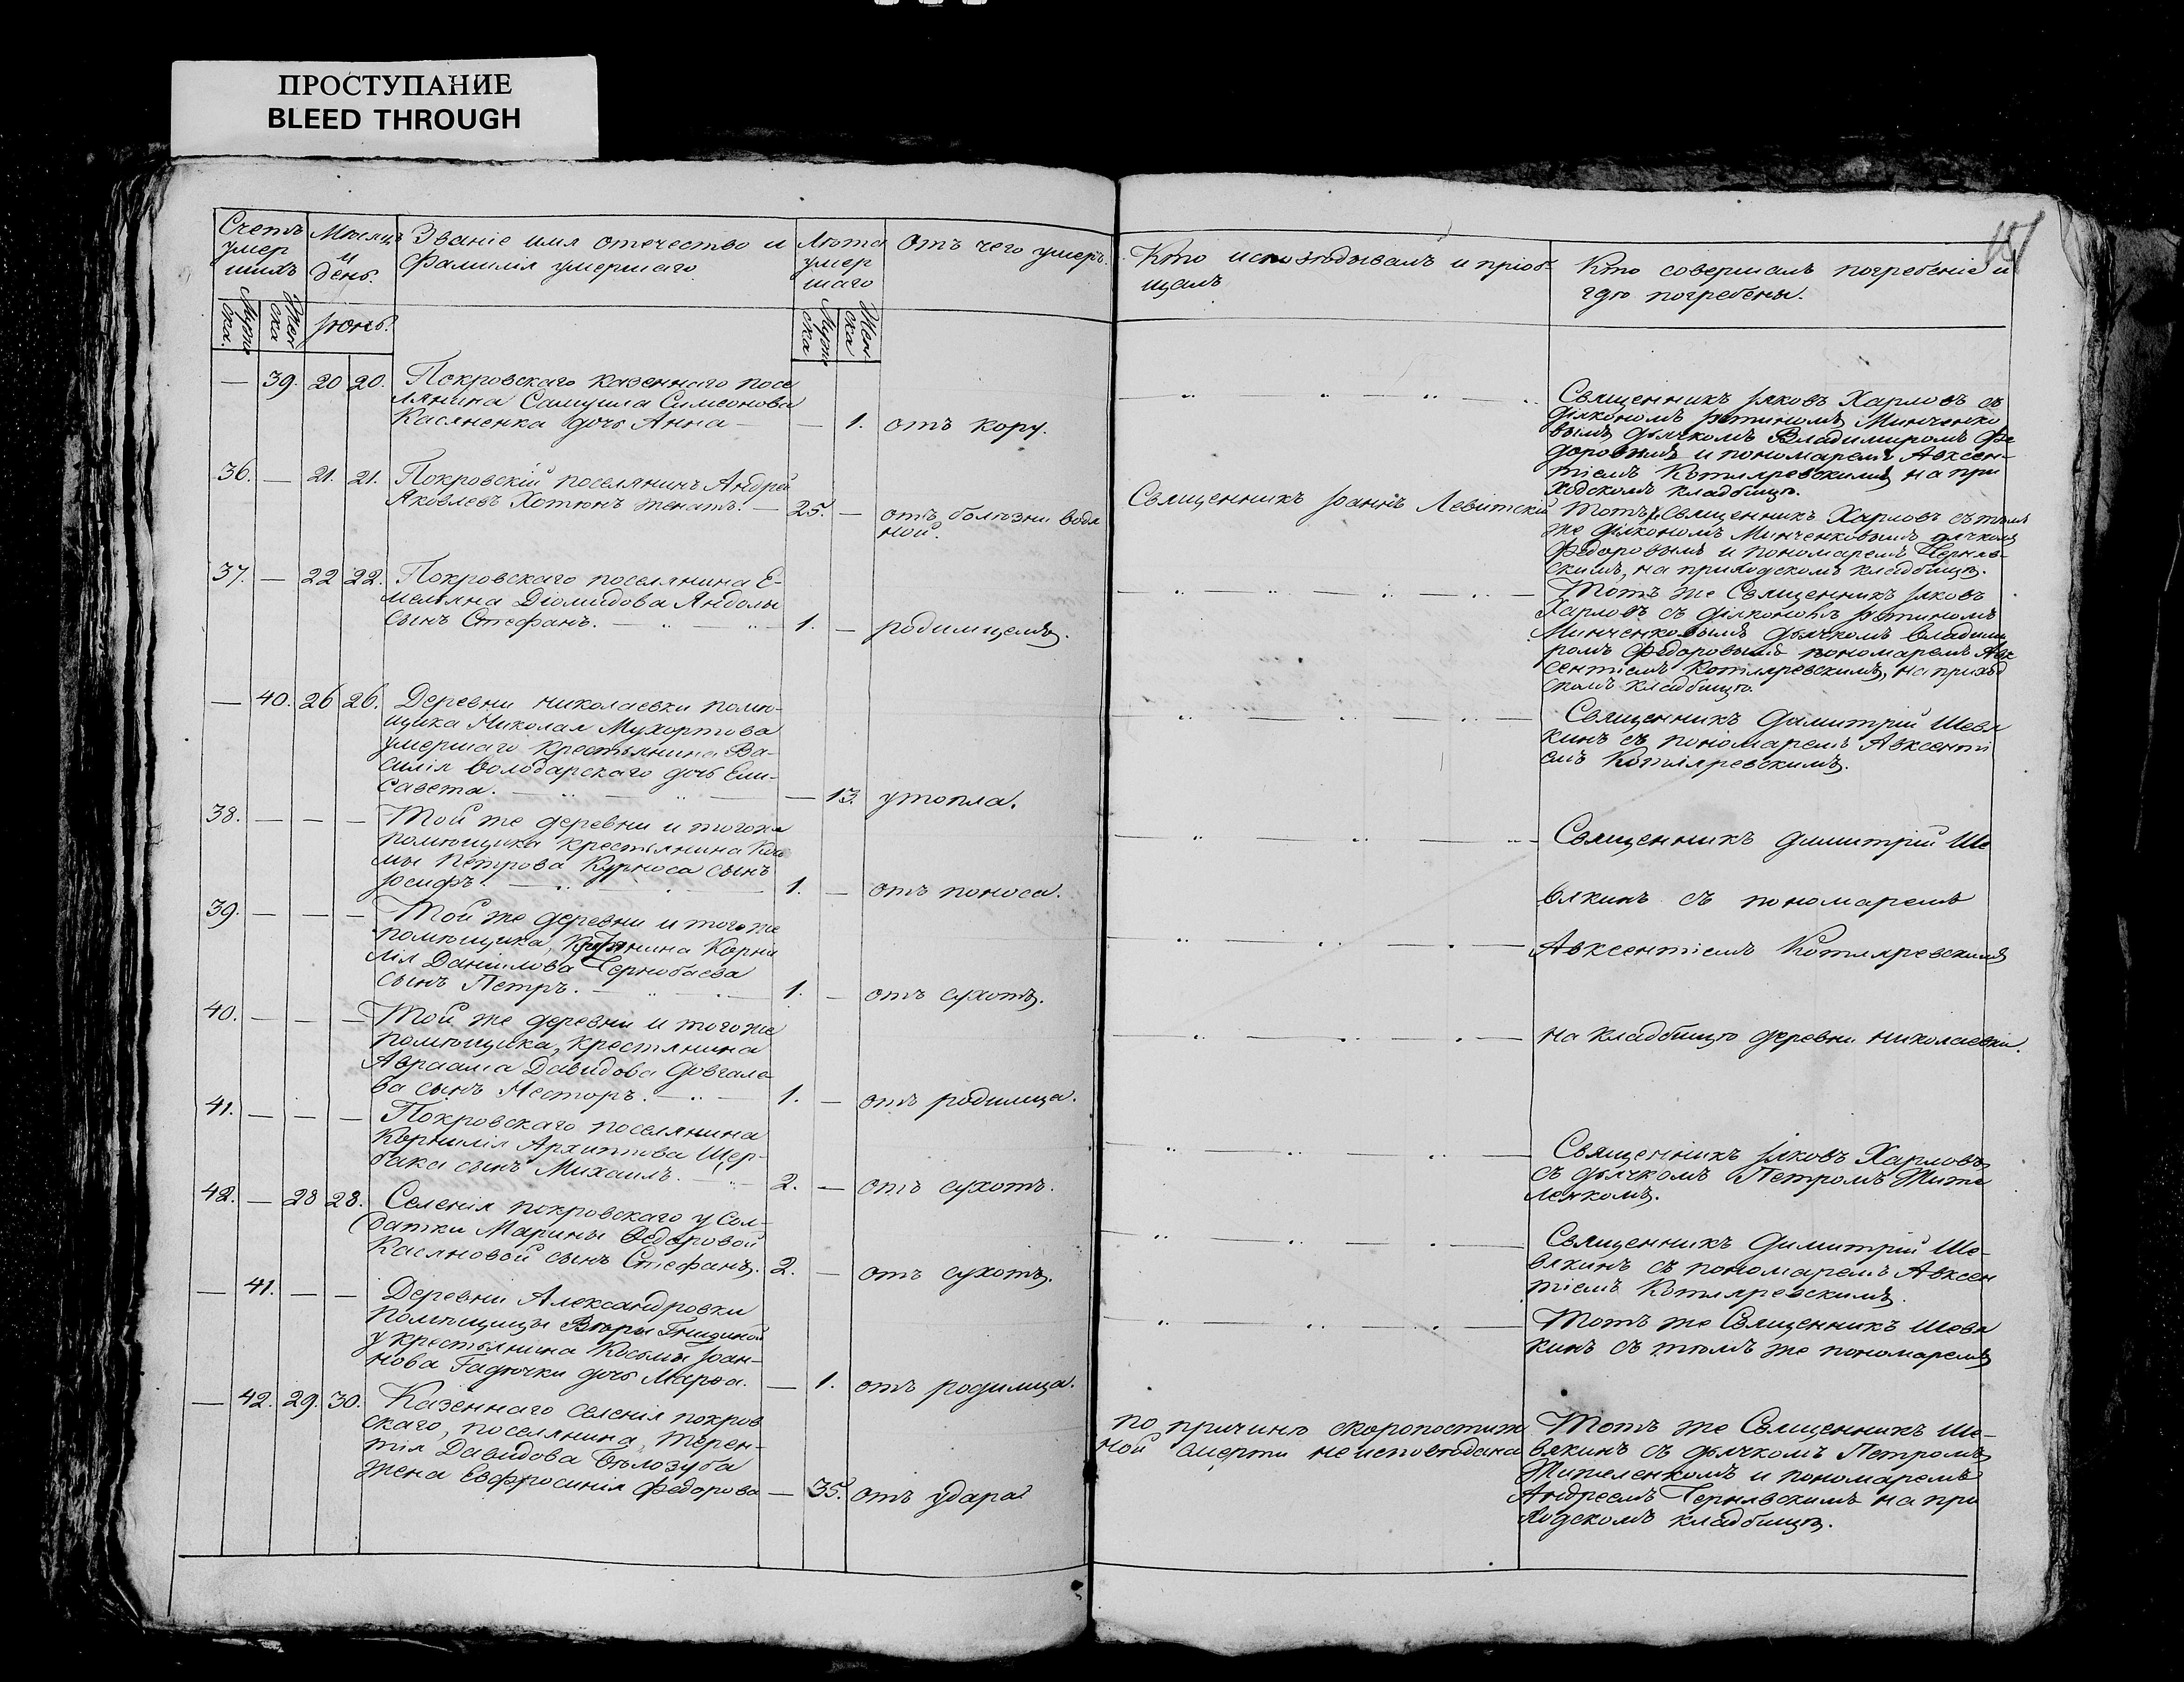 ПРОСТУПАНИЕ
BLEED THROUGH
Счетъ
умер
шихъ
Мѣсяцъ
и
день.
Званіе имя отечество и
фамилія умершаго
Лѣта
умер
шаго
Отъ чего умеръ.
Кто исповѣдывалъ и пріоб-
щалъ
Кто совершалъ погребеніе и
гдѣ погребены.
Муже
ска.
Жен
ска
Іюнь.
Муже
ска
Жен
ска
— 39. 20 20. Покровскаго казеннаго посе
лянина Самуила Симеонова
Касяненка дочь Анна — — 1. отъ кору.
Священникъ Іаковъ Харловъ съ
діакономъ Іустиномъ Минченко
вымъ дьячкомъ Владимиромъ Фе
доровымъ и пономаремъ Авксен-
тіемъ Котляревскимъ на при
ходскомъ кладбищѣ.
36. — 21. 21. Покровскій поселянинъ Андрей
Яковлевъ Хотюнъ женатъ. — 25. — отъ болѣзни водя
ной.
Священникъ Іоаннъ Левитскій
Тотъ Священникъ Харловъ съ тѣмъ
же діакономъ Минченковымъ дячкомъ
Федоровымъ и пономаремъ Черняв-
скимъ, на приходскомъ кладбищѣ.
37. — 22 22. Покровскаго поселянина Е-
меліяна Діомидова Яндолы
сынъ Стефанъ. — 1. — родимцемъ.
Тотъ же Священникъ Іаковъ
Харловъ съ діакономъ Іустиномъ
Минченковымъ дьячкомъ Владими
ромъ Федоровымъ пономаремъ Авк
сентіемъ Котляревскимъ, на приход
скомъ кладбищѣ.
— 40. 26 26. Деревни Николаевки помѣ-
щика Николая Мухортова
умершаго крестьянина Ва-
силія Володарскаго дочь Ели-
савета. — — 13. утопла.
Священникъ Димитрій Шевя
кинъ съ пономаремъ Авксенті
емъ Котляревскимъ.
38. — — — Той же деревни и тогоже
помѣщика крестьянина Кось
мы Петрова Курноса сынъ
Іосифъ. — 1. — отъ поноса.
Священникъ Димитрій Ше
вякинъ съ пономаремъ
39. — — — Той же деревни и того же
помѣщика, крестьянина Корни
лія Даніилова Чернобаева
сынъ Петръ. — 1. — отъ сухотъ.
Авксентіемъ Котляревскимъ
40. — — — Той же деревни и того же
помѣщика, крестянина
Авраама Давидова Довгале
ва сынъ Несторъ. — 1. — отъ родимца.
на кладбищѣ деревни Николаевки.
41. — — — Покровскаго поселянина
Корнилія Архиппова Щер-
бака сынъ Михаилъ. — 2. — отъ сухотъ.
Священникъ Іаковъ Харловъ
съ дьячкомъ Петромъ Жите
ленкомъ.
42. — 28 28. Селенія покровскаго у Сол-
датки Марины Ѳедоровой
Касяновой сынъ Стефанъ. 2. — отъ сухотъ.
Священникъ Димитрій Ше-
вякинъ съ пономаремъ Авксен
тіемъ Котляревскимъ.
— 41. — — Деревни Александровки
помѣщицы Вѣры
у крестьянина Косьмы Іоан-
нова Гадючки дочь Марѳа. — 1. отъ родимца.
Тотъ же Священникъ Шевя
кинъ съ тѣмъ же пономаремъ
— 42. 29. 30. Казеннаго селенія покров
скаго, поселянина, Терен-
тія Давидова Бѣлозуба
жена Евфросинія Федорова — 35. отъ удара
по причинѣ скоропостиж
ной смерти неисповѣдана
Тотъ же Священникъ Ше-
вякинъ съ дьячкомъ Петромъ
Жителенкомъ и пономаремъ
Андреемъ Чернявскимъ на при
ходскомъ кладбищѣ.